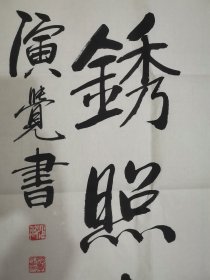 銹照
演覺書